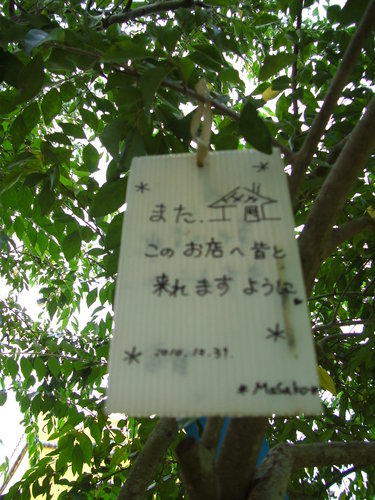 また、
このお店へ皆と
来れますように
2010.10.31.
Masako